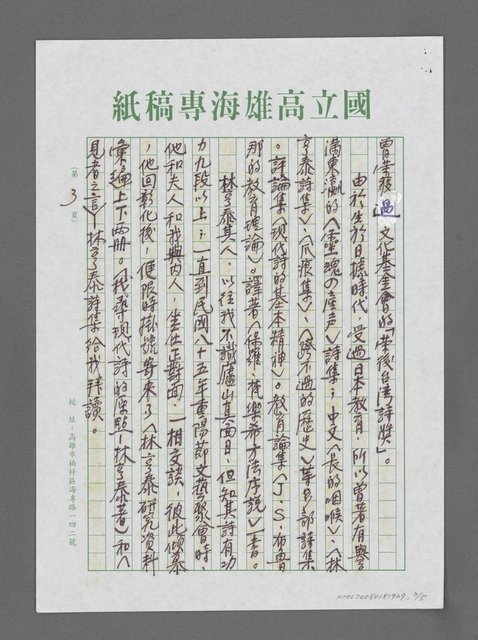 國立高雄海專稿紙
曾榮獲過文化基金會的「榮後台灣詩獎」。
由於生於日據時代,受過日本教育,所以曾著有譽
滿東瀛的《靈魂の産声》詩集;中文《長的咽喉》、《林
亨泰詩集》、《爪痕集》、《跨不過的歷史》等多部詩集
。評論集《現代詩的基本精神》。教育論集《J.S.布魯
那的教育理論》。譯著《保羅.梵樂希方法序說》一書。
林亨泰其人,以往我不識廬山真面目,但知其詩有功
力九段以上;一直到民國八十五年重陽節文藝聚會時,
他和夫人和我與內人,坐位正對面,一相交談,彼此傾慕
,他回彰化後,便限時掛號寄來了《林亨泰研究資料
彙編上下兩冊。《找尋現代詩的原點—林亨泰著》和《
見者之言》—林亨泰詩集給我拜讀。
(第 3 頁)
校址:高雄市楠梓區海專路一四二號
NMTL20080181949. 3/5